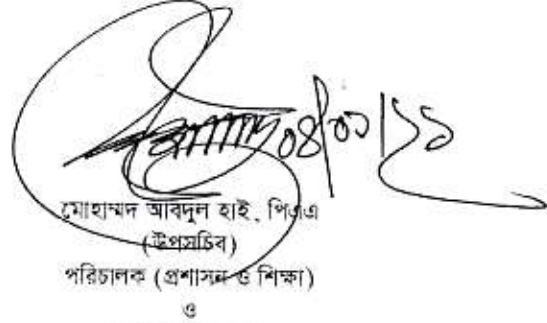 ০৪/০১/১১
মোহাম্মদ আবদুল হাই, পিএএ
(উপসচিব)
পরিচালক (প্রশাসন ও শিক্ষা)
ও